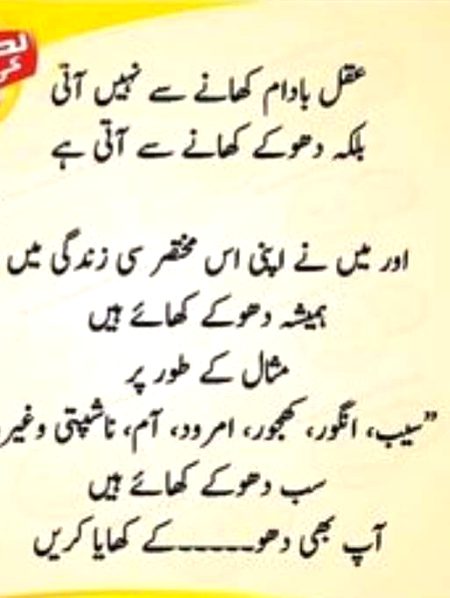 عقل بادام کھانے سے نہیں آتی
بلکہ دھوکے کھانے سے آتی ہے
اور میں نے اپنی اس مختصر سی زندگی میں
ہمیشہ دھوکے کھائے ہیں
مثال کے طور پر
”سیب، انگور، کھجور، امرود، آم، ناشپتی وغیر
سب دھوکے کھائے ہیں
آپ بھی دھو۔۔۔۔۔کے کھایا کریں